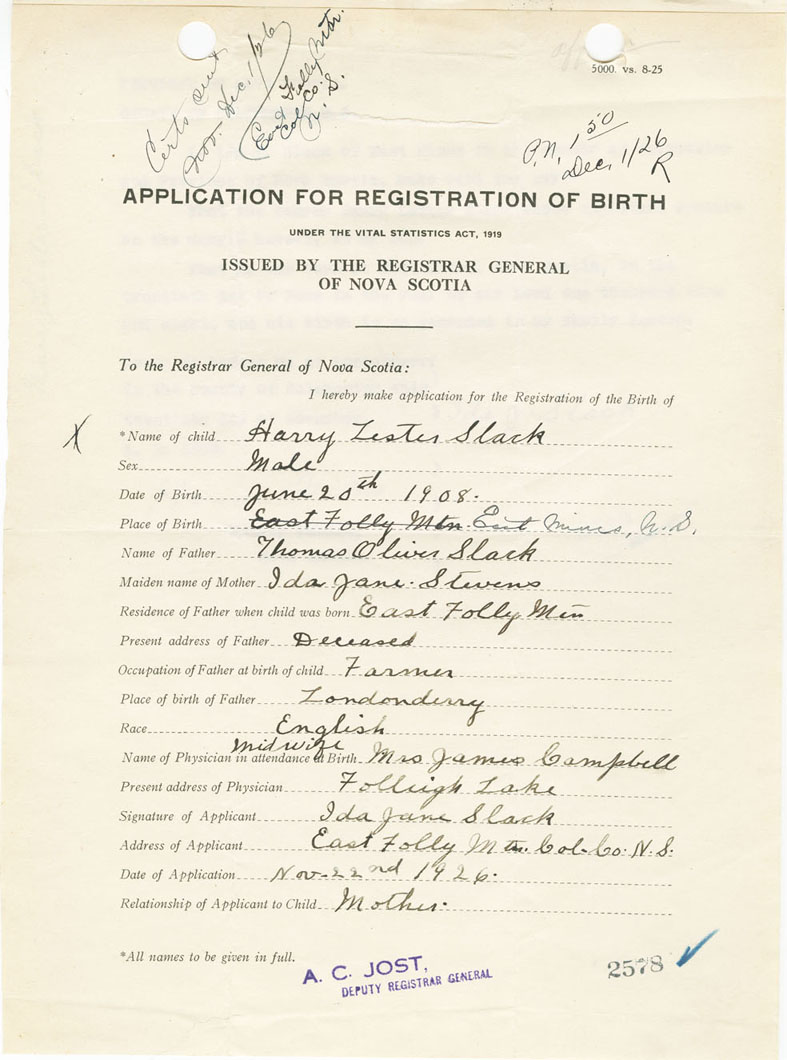 Certs sent
Nov. Dec. 1/26
East Folly Mtn.
Col. Co.
N. S.
5000. vs. 8-25
P.N. 1 50
Dec. 1/26
R
APPLICATION FOR REGISTRATION OF BIRTH
UNDER THE VITAL STATISTICS ACT, 1919
ISSUED BY THE REGISTRAR GENERAL
OF NOVA SCOTIA
To the Registrar General of Nova Scotia:
I hereby make application for the Registration of the Birth of
X
*Name of child Harry Lester Slack
Sex Male
Date of Birth June 20th 1908.
Place of Birth East Folly Mtn East Mines, N. S.
Name of Father Thomas Oliver Slack
Maiden name of Mother Ida Jane Stevens
Residence of Father when child was born East Folly Mtn
Present address of Father Deceased
Occupation of Father at birth of child Farmer
Place of birth of Father Londonderry
Race English
Midwife
Name of Physician in attendance at Birth Mrs James Campbell
Present address of Physician Folleigh Lake
Signature of Applicant Ida Jane Slack
Address of Applicant East Folly Mtn. Col. Co. N. S.
Date of Application Nov. 22nd 1926.
Relationship of Applicant to Child Mother.
*All names to be given in full.
A. C. JOST,
DEPUTY REGISTRAR GENERAL
2578